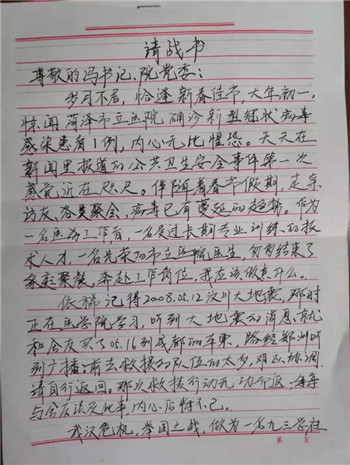 请战书
尊敬的冯书记、院党委：
岁月不居，恰逢新春佳节，大年初一，
惊闻菏泽市立医院确诊新型冠状病毒
感染患者1例，内心无比惶恐。天天在
新闻里报道的公共卫生安全事件第一次
感觉近在咫尺。伴随着春节假期，走亲
访友各类聚会，病毒已有蔓延的趋势。作为
一名医务工作者，一名受过长期专业训练的技
术人才，一名光荣的市立医院医生，匆匆结束了
家庭聚餐，奔赴工作岗位，我应该做点什么。
依稀记得2008.05.12汶川大地震，那时
正在医学院学习，听到大地震的消息，就
和舍友买了05.16到成都的车票，路经郑州听
到广播：前去救援的队伍的太多，难以协调，
请自行返回。那次救援行动无功而返，每每
与舍友谈及此事，内心后悔不已。
武汉危机，举国之战，做为一名九三学社
第 页